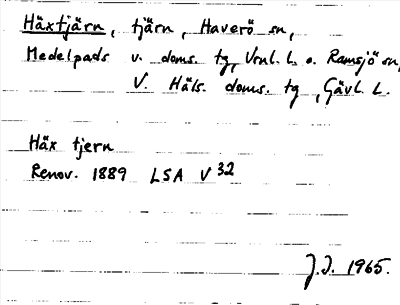 Häxtjärn, tjärn, Haverö sn,
Medelpads v. doms. tg, Vrnl. L. o. Ramsjö sn,
V. Häls. doms. tg, Gävl. L.
Häx tjern
Renov. 1889 LSA V 32
J.J. 1965.